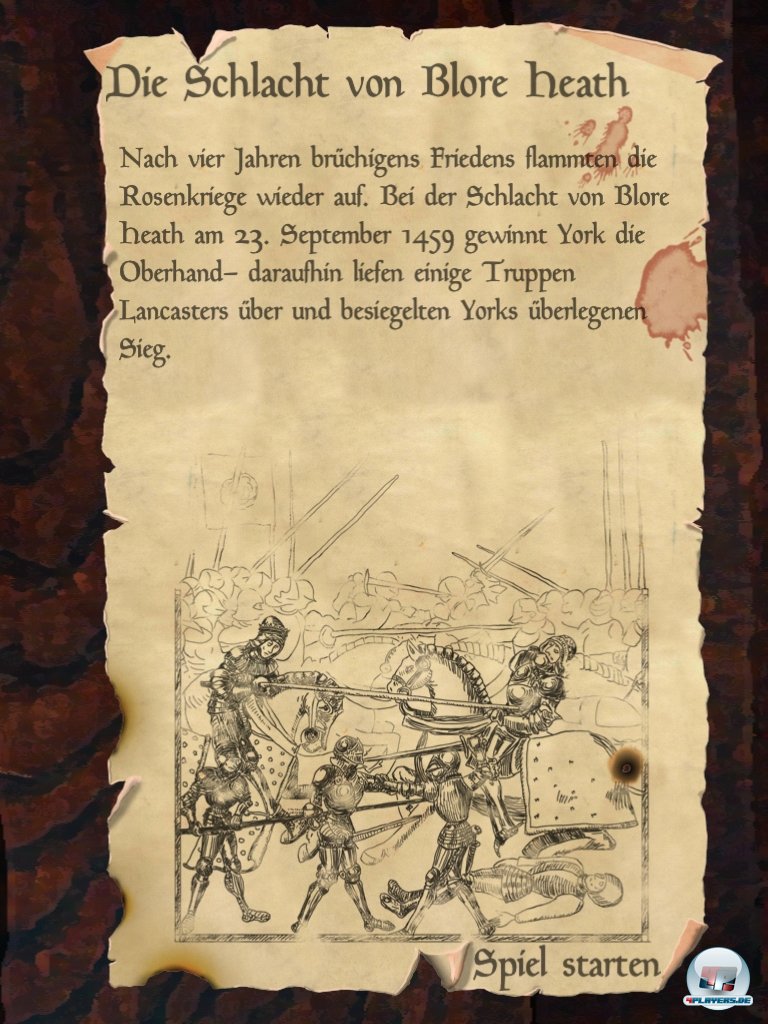 Die Schlacht von Blore Heath
Nach vier Jahren brüchigens Friedens flammten die
Rosenkriege wieder auf. Bei der Schlacht von Blore
Heath am 23. September 1459 gewinnt York die
Oberhand– daraufhin liefen einige Truppen
Lancasters über und besiegelten Yorks überlegenen
Sieg.
Spiel starten
4PLAYERS.DE